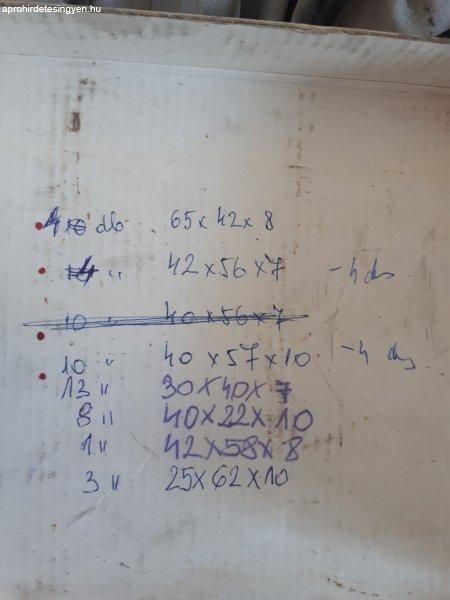 aprohirdetesingyen.hu
4 db 65 x 42 x 8
" 42 x 56 x 7 - 4 db
10 " 40 x 56 x 7
10 " 40 x 57 x 10 - 4 db
13 " 30 x 40 x 7
8 " 40 x 22 x 10
1 " 42 x 58 x 8
3 " 25 x 62 x 10